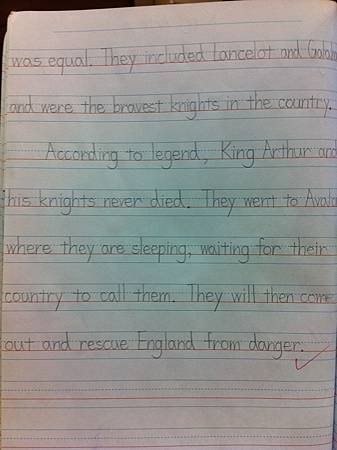 was equal. They included Lancelot and Galaha
and were the bravest knights in the country.
According to legend, King Arthur and
his knights never died. They went to Avalo
where they are sleeping, waiting for their
country to call them. They will then come
out and rescue England from danger.